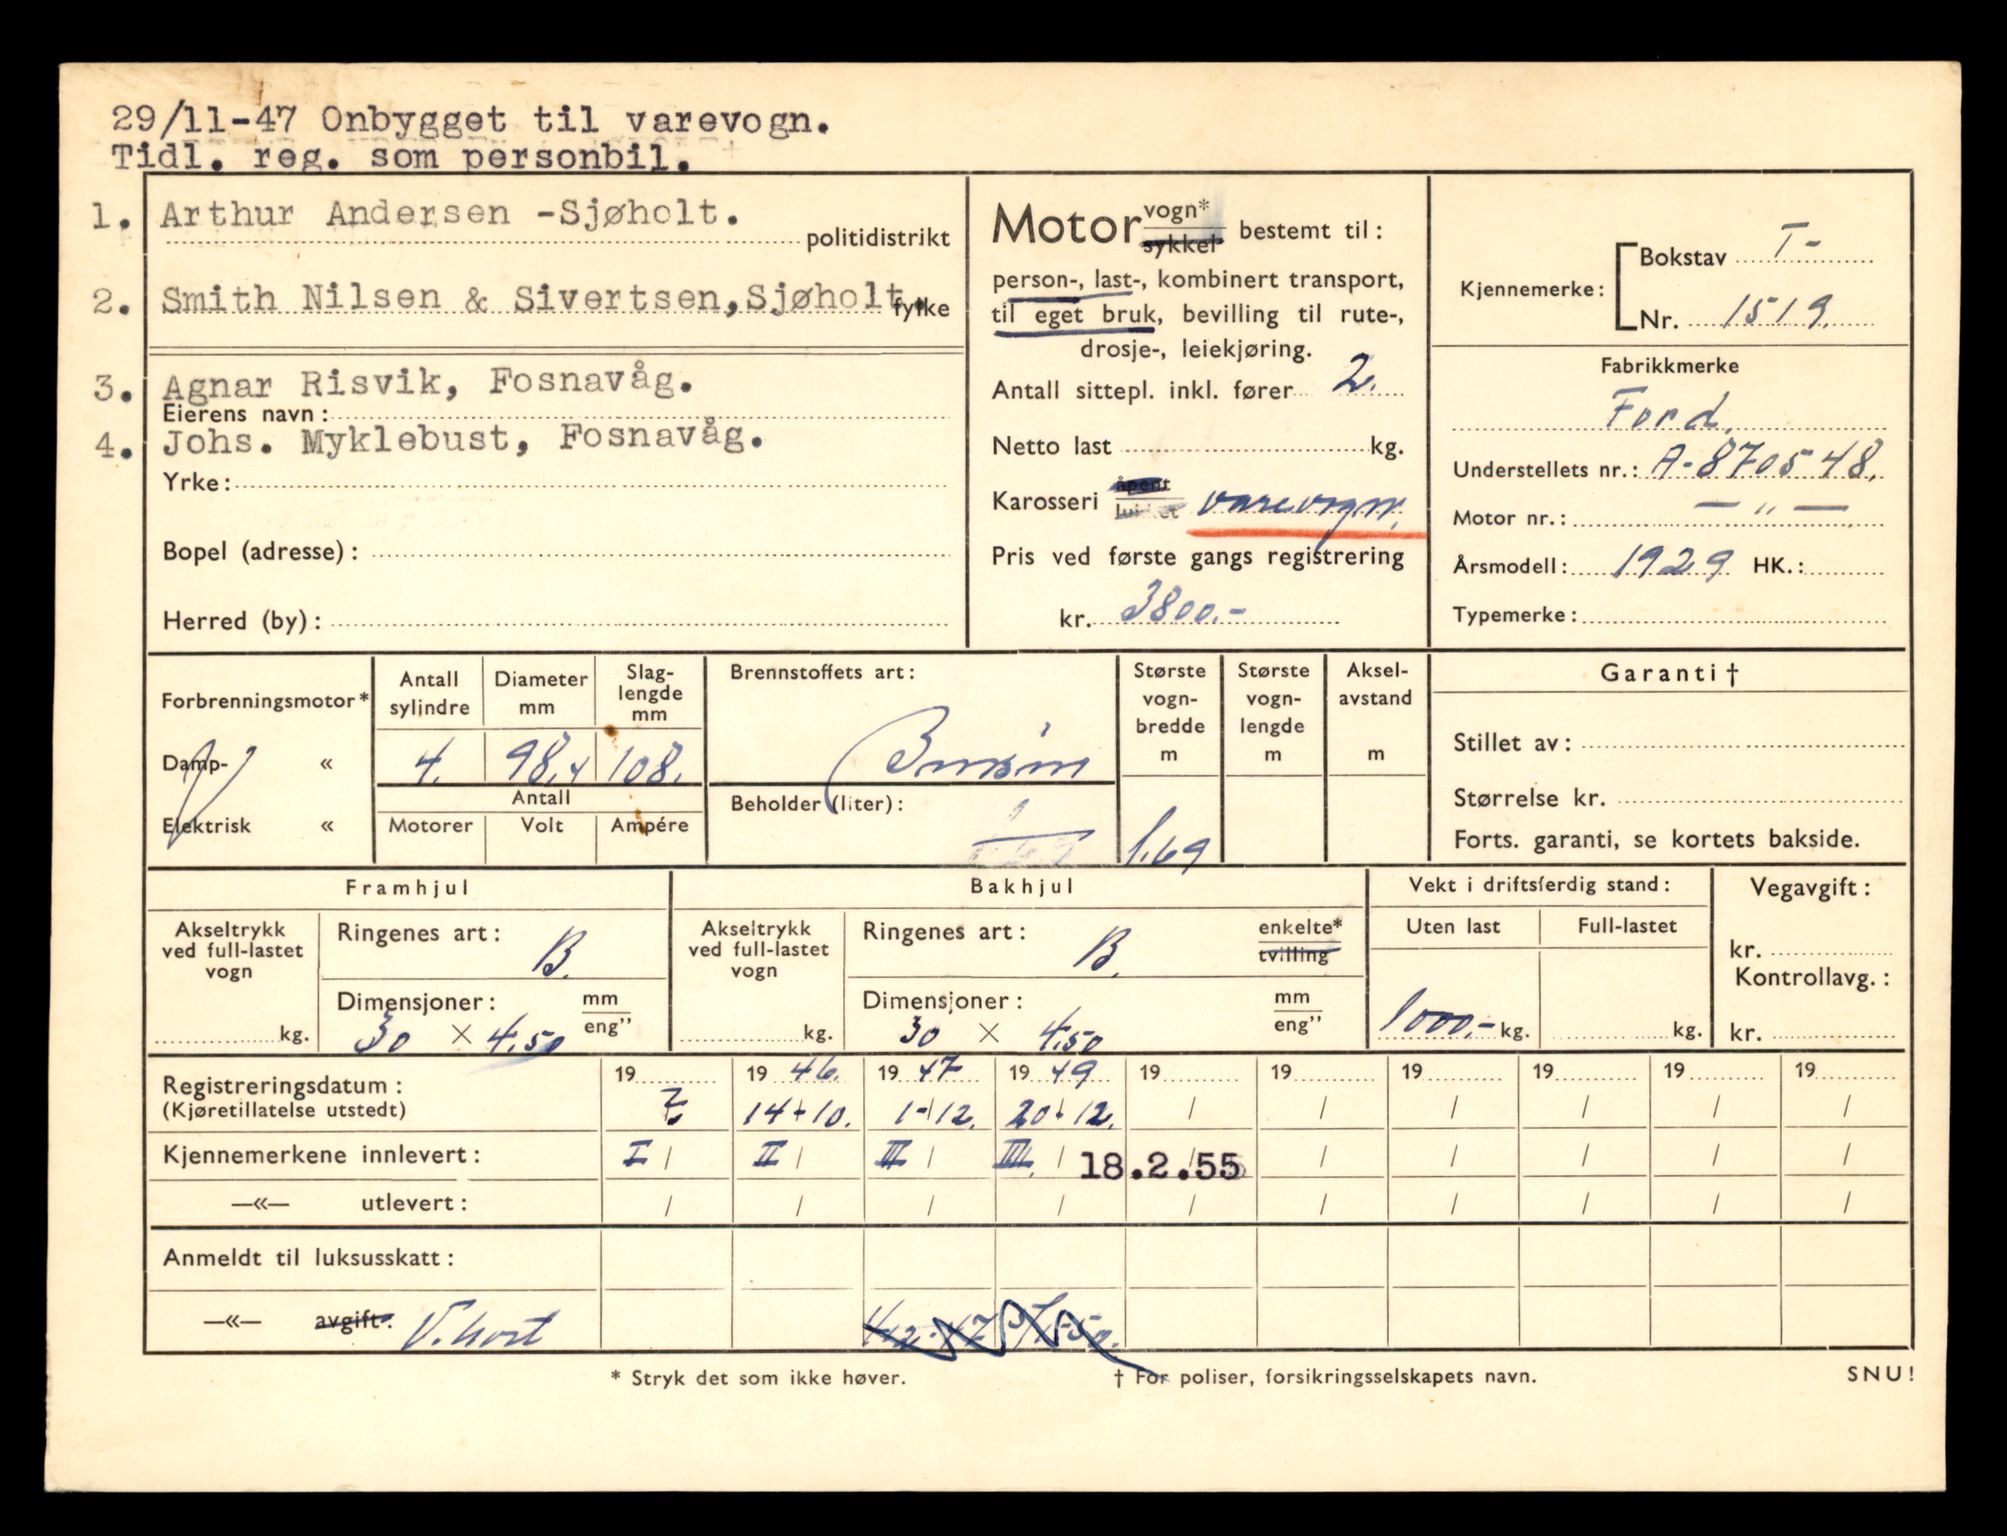 29/11-47 Onbygget til varevogn.
Tidl. reg. som personbil.
1. Arthur Andersen -Sjøholt.
politidistrikt
2. Smith Nilsen & Sivertsen, Sjøholt.
fylke
3. Agnar Risvik, Fosnavåg.
Eierens navn:
4. Johs. Myklebust, Fosnavåg.
Yrke:
Bopel (adresse):
Herred (by):
Motor vogn* sykkel bestemt til:
person-, last-, kombinert transport,
til eget bruk, bevilling til rute-,
drosje-, leiekjøring.
Antall sittepl. inkl. fører 2.
Netto last kg.
Karosseri åpent lukket varevogn.
Pris ved første gangs registrering
kr. 3800.-
Kjennemerke: Bokstav T-
Nr. 1519.
Fabrikkmerke
Ford.
Understellets nr.: A-870548.
Motor nr.: — " —
Årsmodell: 1929 HK.:
Typemerke:
Forbrenningsmotor*
Damp- «
Elektrisk «
Antall sylindre
Diameter mm
Slag-lengde mm
4. 98,4 108.
Antall
Motorer Volt Ampére
Brennstoffets art:
Bensin
Beholder (liter):
Største vogn-bredde m
1.69
Største vogn-lengde m
Aksel-avstand m
Garanti †
Stillet av:
Størrelse kr.
Forts. garanti, se kortets bakside.
Framhjul
Akseltrykk ved full-lastet vogn
kg.
Ringenes art: B.
Dimensjoner: mm eng"
30 × 4.50
Bakhjul
Akseltrykk ved full-lastet vogn
kg.
Ringenes art: B. enkelte* tvilling
Dimensjoner: mm eng"
30 × 4.50
Vekt i driftsferdig stand:
Uten last Full-lastet
1000.- kg. kg.
Vegavgift:
kr.
Kontrollavg.:
kr.
Registreringsdatum: 19 19 46. 19 47 19 49 19 19 19 19 19 19
(Kjøretillatelse utstedt) 14-10. 1-12. 20-12. / / / / / /
Kjennemerkene innlevert: I / II / III / IIII. / 18.2.55 / / / / /
—«— utlevert: / / / / / / / / / /
Anmeldt til luksusskatt:
—«— avgift:
* Stryk det som ikke høver.
† For poliser, forsikringsselskapets navn.
SNU!